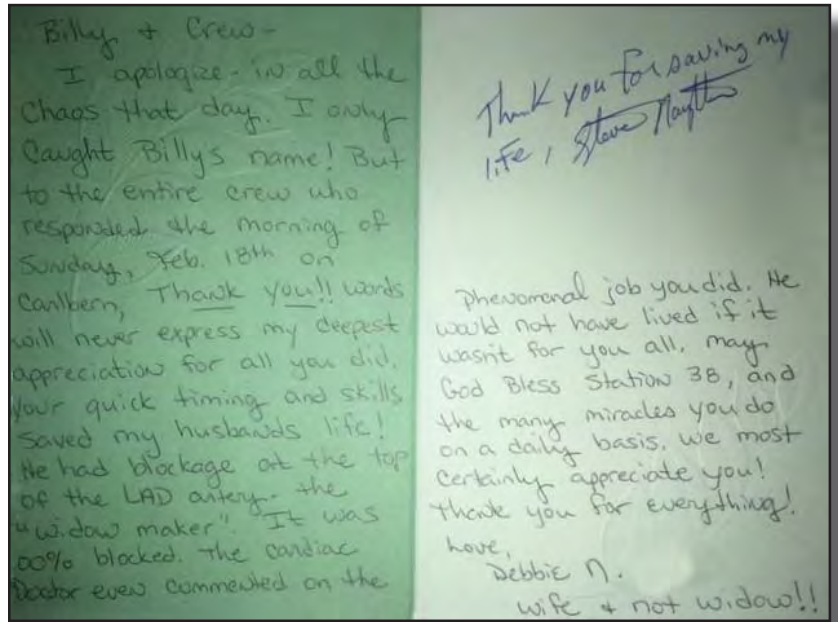 Billy + Crew-
I apologize - in all the
Chaos that day. I only
Caught Billy's name! But
to the entire crew who
responded the morning of
Sunday, Feb. 18th on
Canlbern, Thank you!! words
will never express my deepest
appreciation for all you did.
Your quick timing and skills
saved my husbands life!
He had blockage at the top
of the LAD artery - the
"widow maker". It was
00% blocked. The cardiac
Doctor even commented on the
Thank you for saving my
life, Steve
phenomonal job you did. He
would not have lived if it
wasn't for you all. may
God Bless Station 38, and
the many miracles you do
on a daily basis. we most
certainly appreciate you!
Thank you for everything!
Love,
Debbie N.
wife + not widow!!